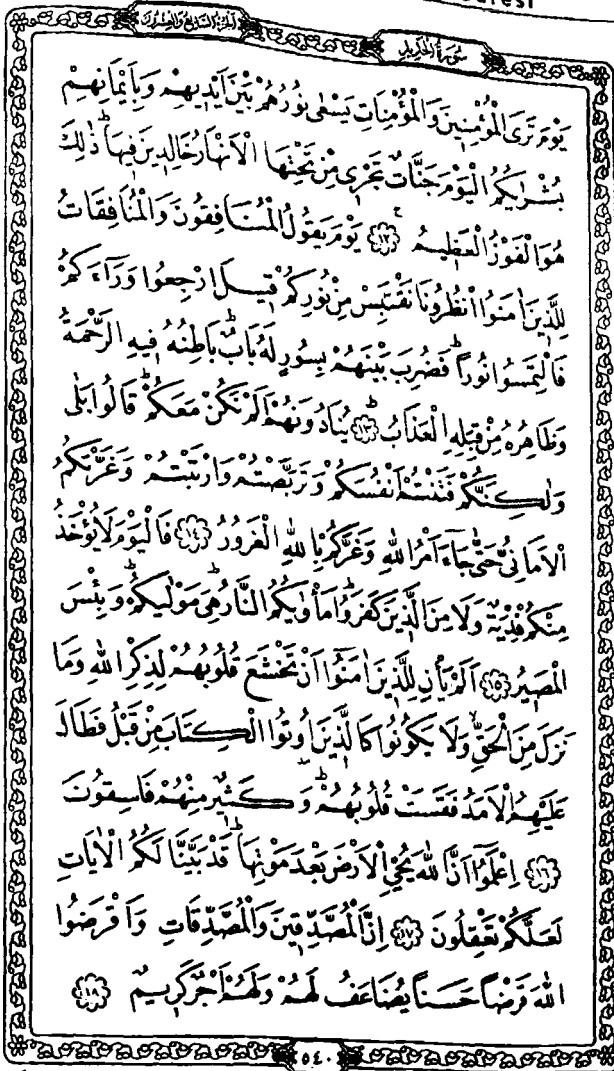 سُورَةُ الْحَدِيدِ
اَلْجُزْءُ السَّابِعُ وَالْعِشْرُونَ
يَوْمَ تَرَى الْمُؤْمِنِينَ وَالْمُؤْمِنَاتِ يَسْعٰى نُورُهُمْ بَيْنَ اَيْدِيهِمْ وَبِاَيْمَانِهِمْ
بُشْرٰيكُمُ الْيَوْمَ جَنَّاتٌ تَجْرِى مِنْ تَحْتِهَا الْاَنْهَارُ خَالِدِينَ فِيهَا ذٰلِكَ
هُوَ الْفَوْزُ الْعَظِيمُ ﴿١٢﴾ يَوْمَ يَقُولُ الْمُنَافِقُونَ وَالْمُنَافِقَاتُ
لِلَّذِينَ اٰمَنُوا انْظُرُونَا نَقْتَبِسْ مِنْ نُورِكُمْ قِيلَ ارْجِعُوا وَرَٓاءَكُمْ
فَالْتَمِسُوا نُوراً فَضُرِبَ بَيْنَهُمْ بِسُورٍ لَهُ بَابٌ بَاطِنُهُ فِيهِ الرَّحْمَةُ
وَظَاهِرُهُ مِنْ قِبَلِهِ الْعَذَابُ ﴿١٣﴾ يُنَادُونَهُمْ اَلَمْ نَكُنْ مَعَكُمْ قَالُوا بَلٰى
وَلٰكِنَّكُمْ فَتَنْتُمْ اَنْفُسَكُمْ وَتَرَبَّصْتُمْ وَارْتَبْتُمْ وَغَرَّتْكُمُ
الْاَمَانِىُّ حَتّٰى جَٓاءَ اَمْرُ اللّٰهِ وَغَرَّكُمْ بِاللّٰهِ الْغَرُورُ ﴿١٤﴾ فَالْيَوْمَ لَا يُؤْخَذُ
مِنْكُمْ فِدْيَةٌ وَلَا مِنَ الَّذِينَ كَفَرُوا مَأْوٰيكُمُ النَّارُ هِىَ مَوْلٰيكُمْ وَبِئْسَ
الْمَصِيرُ ﴿١٥﴾ اَلَمْ يَأْنِ لِلَّذِينَ اٰمَنُٓوا اَنْ تَخْشَعَ قُلُوبُهُمْ لِذِكْرِ اللّٰهِ وَمَا
نَزَلَ مِنَ الْحَقِّ وَلَا يَكُونُوا كَالَّذِينَ اُوتُوا الْكِتَابَ مِنْ قَبْلُ فَطَالَ
عَلَيْهِمُ الْاَمَدُ فَقَسَتْ قُلُوبُهُمْ وَكَثِيرٌ مِنْهُمْ فَاسِقُونَ
﴿١٦﴾ اِعْلَمُٓوا اَنَّ اللّٰهَ يُحْيِى الْاَرْضَ بَعْدَ مَوْتِهَا قَدْ بَيَّنَّا لَكُمُ الْاٰيَاتِ
لَعَلَّكُمْ تَعْقِلُونَ ﴿١٧﴾ اِنَّ الْمُصَّدِّقِينَ وَالْمُصَّدِّقَاتِ وَاَقْرَضُوا
اللّٰهَ قَرْضاً حَسَناً يُضَاعَفُ لَهُمْ وَلَهُمْ اَجْرٌ كَرِيمٌ ﴿١٨﴾
٥٤٠